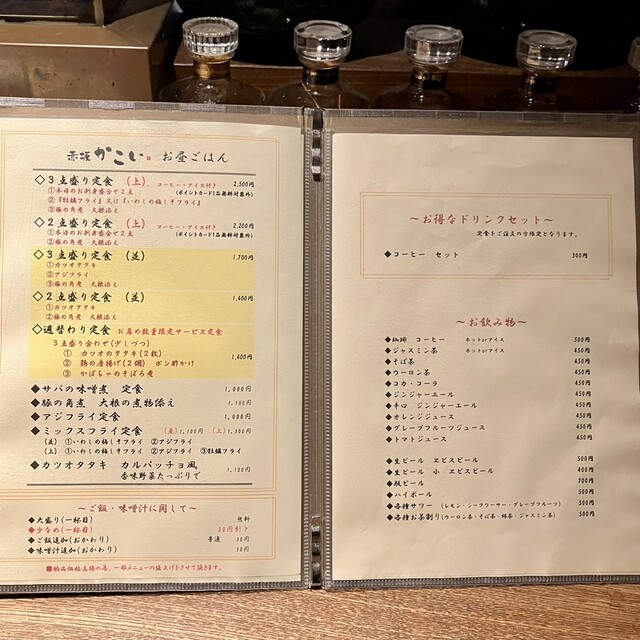 赤坂 かこい お昼ごはん
◇3点盛り定食 (上) コーヒー・アイス付き 2,500円
①本日のお刺身盛合せ2点 (ポイントカード1品無料対象外)
②『牡蠣フライ』又は『いわしの梅しそフライ』
③豚の角煮 大根添え
◇2点盛り定食 (上) コーヒー・アイス付き 2,200円
①本日のお刺身盛合せ2点 (ポイントカード1品無料対象外)
②豚の角煮 大根添え
◇3点盛り定食 (並) 1,700円
①カツオタタキ
②アジフライ
③豚の角煮 大根添え
◇2点盛り定食 (並) 1,400円
①カツオタタキ
②豚の角煮 大根添え
◇週替わり定食 お昼の数量限定サービス定食
3点盛り合わせ(少しづつ)
① カツオのタタキ(2枚)
② 鶏の唐揚げ(2個) ポン酢かけ 1,400円
③ かぼちゃのそぼろ煮
◆サバの味噌煮 定食 1,000円
◆豚の角煮 大根の煮物添え 1,100円
◆アジフライ定食 1,000円
◆ミックスフライ定食 (並)1,100円 (上)1,300円
(並) ①いわしの梅しそフライ ②アジフライ
(上) ①いわしの梅しそフライ ②アジフライ ③牡蠣フライ
◆カツオタタキ カルパッチョ風 1,100円
香味野菜たっぷりで
～ご飯・味噌汁に関して～
◆大盛り(一杯目) 無料
◆少なめ(一杯目) 30円引き
◆ご飯追加(おかわり) 普通 50円
◆味噌汁追加(おかわり) 50円
■納品価格高騰の為、一部メニューの値上げをさせて頂きます。
～お得なドリンクセット～
定食をご注文の方限定となります。
◆コーヒー セット 300円
～お飲み物～
◆珈琲 コーヒー ホットorアイス 500円
◆ジャスミン茶 ホットorアイス 450円
◆そば茶 450円
◆ウーロン茶 450円
◆コカ・コーラ 450円
◆ジンジャーエール 450円
◆辛口 ジンジャーエール 450円
◆オレンジジュース 450円
◆グレープフルーツジュース 450円
◆トマトジュース 450円
◆生ビール ヱビスビール 500円
◆生ビール 小 ヱビスビール 400円
◆瓶ビール 700円
◆ハイボール 500円
◆各種サワー (レモン・シークワーサー・グレープフルーツ) 500円
◆各種お茶割り(ウーロン茶・そば茶・緑茶・ジャスミン茶) 500円